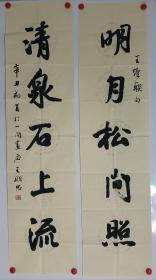 明月松间照
王维联句
清泉石上流
辛丑初夏